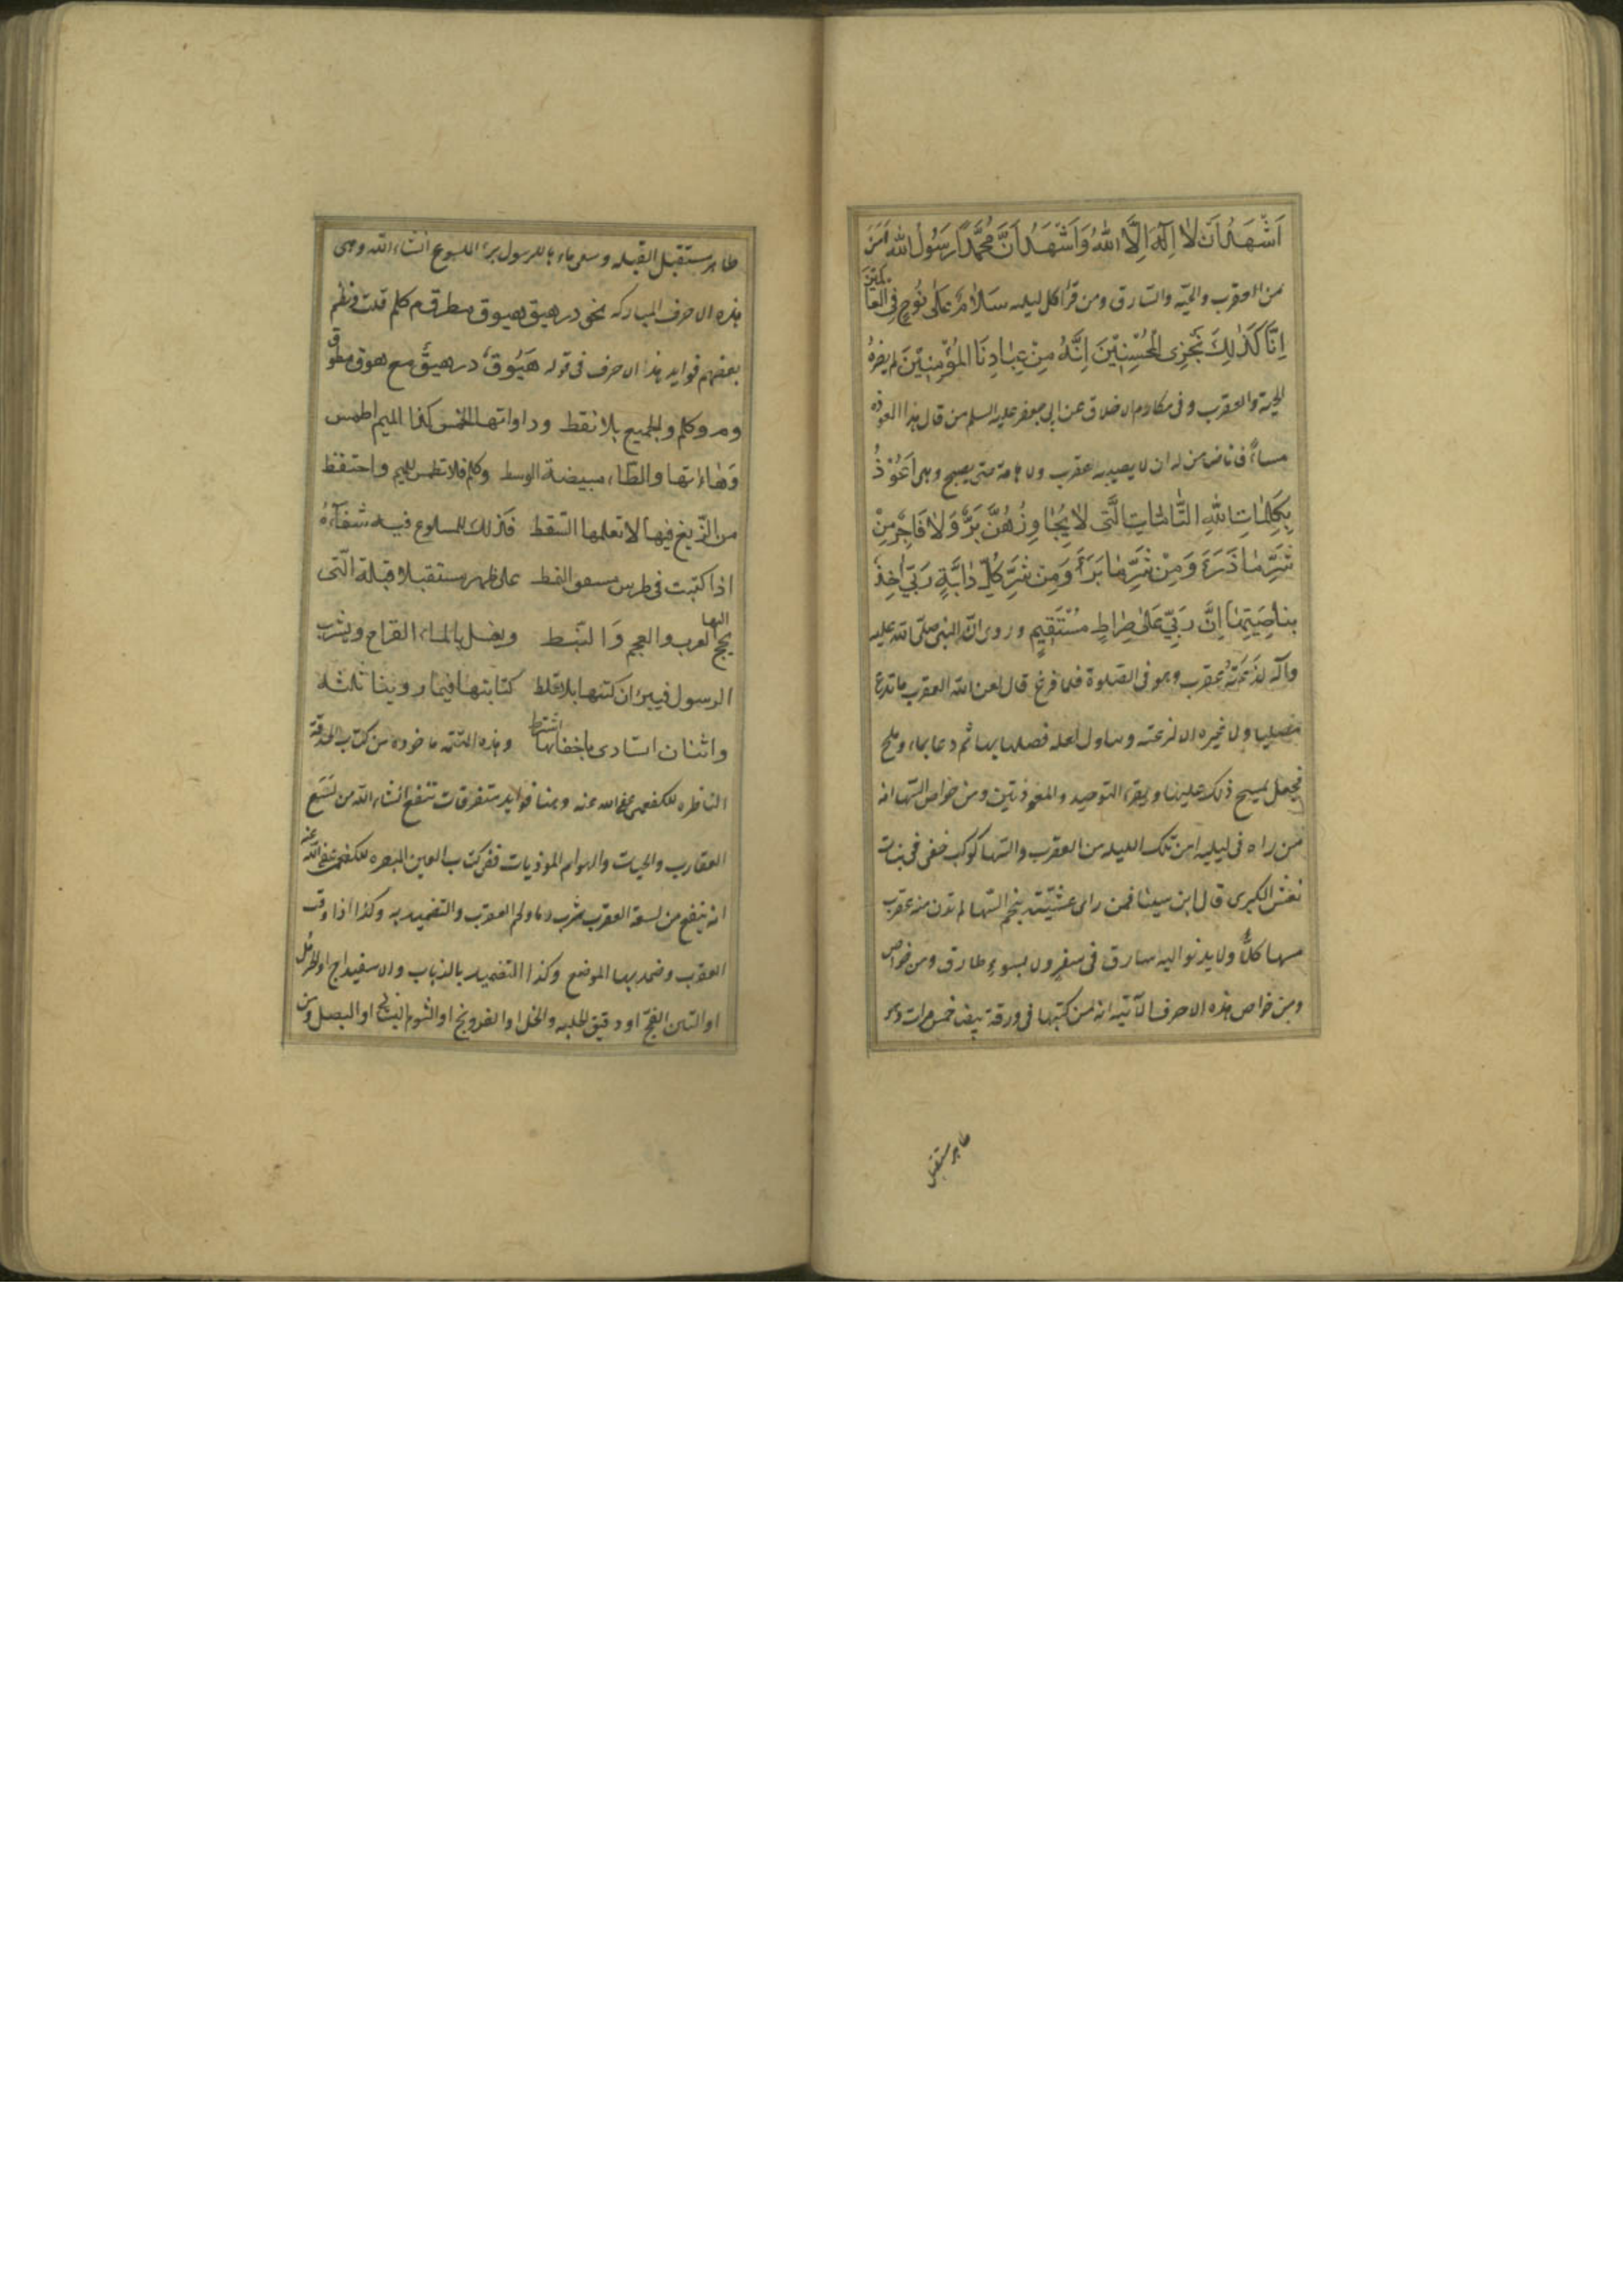 اَشْهَدُ اَنْ لَا اِلٰهَ اِلَّا اللهُ وَ اَشْهَدُ اَنَّ مُحَمَّداً رَسُولُ اللهِ اَمِنَ
من العقرب والحيّه والسّارق ومن قرأ كل ليله سَلَامٌ عَلٰى نُوحٍ فِى العَالَمِينَ
اِنَّا كَذٰلِكَ نَجْزِى الْمُحْسِنِينَ اِنَّهُ مِنْ عِبَادِنَا الْمُؤْمِنِينَ لم يضرهُ
الحية والعقرب وفى مكارم الاخلاق عن ابى جعفر عليه السلم من قال هذا العوذه
مساءً فانا ضامن له ان لا يصيبه عقرب ولا هامة حتى يصبح وهى اَعُوْذُ
بِكَلِمَاتِ اللهِ التَّامَّاتِ الَّتى لَا يُجَاوِزُهُنَّ بَرٌّ وَلَا فَاجِرٌ مِنْ
شَرِّ مَا ذَرَءَ وَمِنْ شَرِّ مَا بَرَأَ وَمِنْ شَرِّ كُلِّ دَابَّةٍ رَبّى آخِذٌ
بِنَاصِيَتِهَا اِنَّ رَبِّى عَلٰى صِرَاطٍ مُسْتَقِيمٍ وروى انّ النبى صلّى الله عليه
وآله لذعته عقرب وهو فى الصّلوة فلما فرغ قال لعن الله العقرب ما تدع
مصليا ولا غيره الا لذعته وتناول نعله فقتلها بها ثم دعا بماء وملح
فجعل يمسح ذلك عليها ويقرء التوحيد والمعوذتين ومن خواص السّها انه
من راه فى ليلته امن تلك الليله من العقرب والسّها كوكب خفى فى بنات
نعش الكبرى قال ابن سينا فمن راى عشيّته نجم السّها لم تدن منه عقرب
مسها كلّا ولا يدنو اليه سارق فى سفر ولا بسوء طارق ومن خواص
ومن خواص هذه الاحرف الآتيه انه من كتبها فى ورقة بيضا خمس مرات وهو
طاهر مستقبل
طاهر مستقبل القبله وسقى ماءها للرسول برئ الملسوع انشاء الله وهى
هذه الاحرف المباركه
بعضهم فوايد هذا الاحرف فى قوله
والجميع بلا نقط وداواتها الخمس كذا الميم اطمس
وَهَاءاتها والطّاء مبيضة الوسط وكلم فلا تطمس لميم واحتفظ
من الزّيغ فيها لا تعلمها السّقط فذلك للملسوع فيه شفآءهُ
اذا كتبت فى طرس على طهر مستقبلا قبلة الّتى
يحج اليها لعرب والعجم وَ النّبط ويغسل بالماء القراح ويشرب
الرسول فيبرئ ان كتبها بلا غلط كتابتها فيما روينا ثلثه
واثنان استادى باخفائها اشترط وهذه التتمه ماخوذه من كتاب الحدقة
الناظره للكفعمى عفى الله عنه وهنا فوايد متفرقات تنفع انشاء الله من لَسْع
العقارب والحيات والهوام الموذيات ففى كتاب العين المبصره للكفعمى عفى الله عنه
انه ينفع من لسعة العقرب شرب دماء ولحم العقرب والتضميد به وكذا اذا دقت
العقرب وضمد بها الموضع وكذا التضميد بالذباب والاسفيداج او الخردل
او التين الفج او دقيق الحلبه والخل او الفروتخ او الثوم او البصل ومن